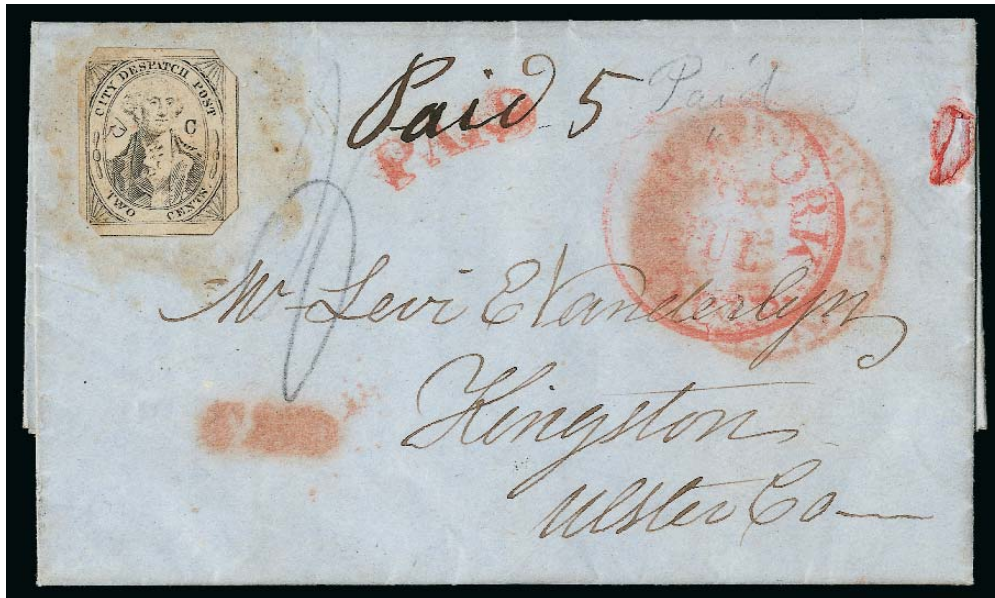 CITY DESPATCH POST
C C
TWO CENTS
Paid 5 Paid
PAID
YORK
JUL
Mr Levi E Vanderlyn
Kingston
Ulster Co